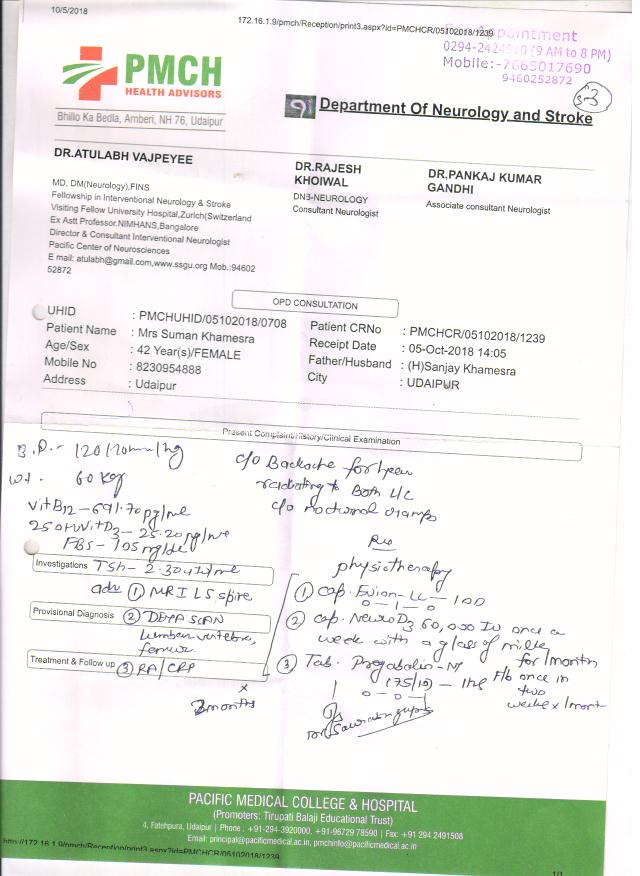 10/5/2018
172.16.1.9/pmch/Reception/print3.aspx?id=PMCHCR/05102018/1239
Appointment
0294-2424 (9 AM to 8 PM)
Mobile:-7665017690
9460252872
S-3
PMCH
HEALTH ADVISORS
Bhillo Ka Bedla, Amberi, NH 76, Udaipur
Department Of Neurology and Stroke
DR.ATULABH VAJPEYEE
MD, DM(Neurology),FINS
Fellowship in Interventional Neurology & Stroke
Visiting Fellow University Hospital,Zurich(Switzerland
Ex Astt Professor.NIMHANS,Bangalore
Director & Consultant Interventional Neurologist
Pacific Center of Neurosciences
E mail: atulabh@gmail.com,www.ssgu.org Mob.:94602
52872
DR.RAJESH
KHOIWAL
DNB-NEUROLOGY
Consultant Neurologist
DR,PANKAJ KUMAR
GANDHI
Associate consultant Neurologist
OPD CONSULTATION
UHID : PMCHUHID/05102018/0708
Patient Name : Mrs Suman Khamesra
Age/Sex : 42 Year(s)/FEMALE
Mobile No : 8230954888
Address : Udaipur
Patient CRNo : PMCHCR/05102018/1239
Receipt Date : 05-Oct-2018 14:05
Father/Husband : (H)Sanjay Khamesra
City : UDAIPUR
Present Complaint/History/Clinical Examination
B.P.- 120/70mm/hg
wt. 60 kg
Vit B12 - 691.70 pg/ml
25 OH Vit D3 - 25.20 pg/ml
FBS - 105 mg/dl
TSH - 2.30
c/o Backache for 1 year
radiating to Both L/L
c/o nocturnal cramps
Investigations
adv ① MRI LS spine
Provisional Diagnosis
② DEXA SCAN
Lumbar vertebra,
femur
Treatment & Follow up
③ RA/CRP
x
2 months
Rx
physiotherapy
① Cap. Evion-LC - 10D
0-1-0
② Cap. Neuro D3 60,000 IU once a
week with a glass of milk
for 1 month
F/b once in
two
weeks x 1 month
③ Tab. Pregabalin-NT
(75/10) - 1HS
0-0-1
PACIFIC MEDICAL COLLEGE & HOSPITAL
(Promoters: Tirupati Balaji Educational Trust)
4, Fatehpura, Udaipur | Phone : +91-294-3920000, +91-96729 78590 | Fax: +91 294 2491508
Email: principal@pacificmedical.ac.in, pmchinfo@pacificmedical.ac.in
http://172.16.1.9/pmch/Reception/print3.aspx?id=PMCHCR/05102018/1239
1/1